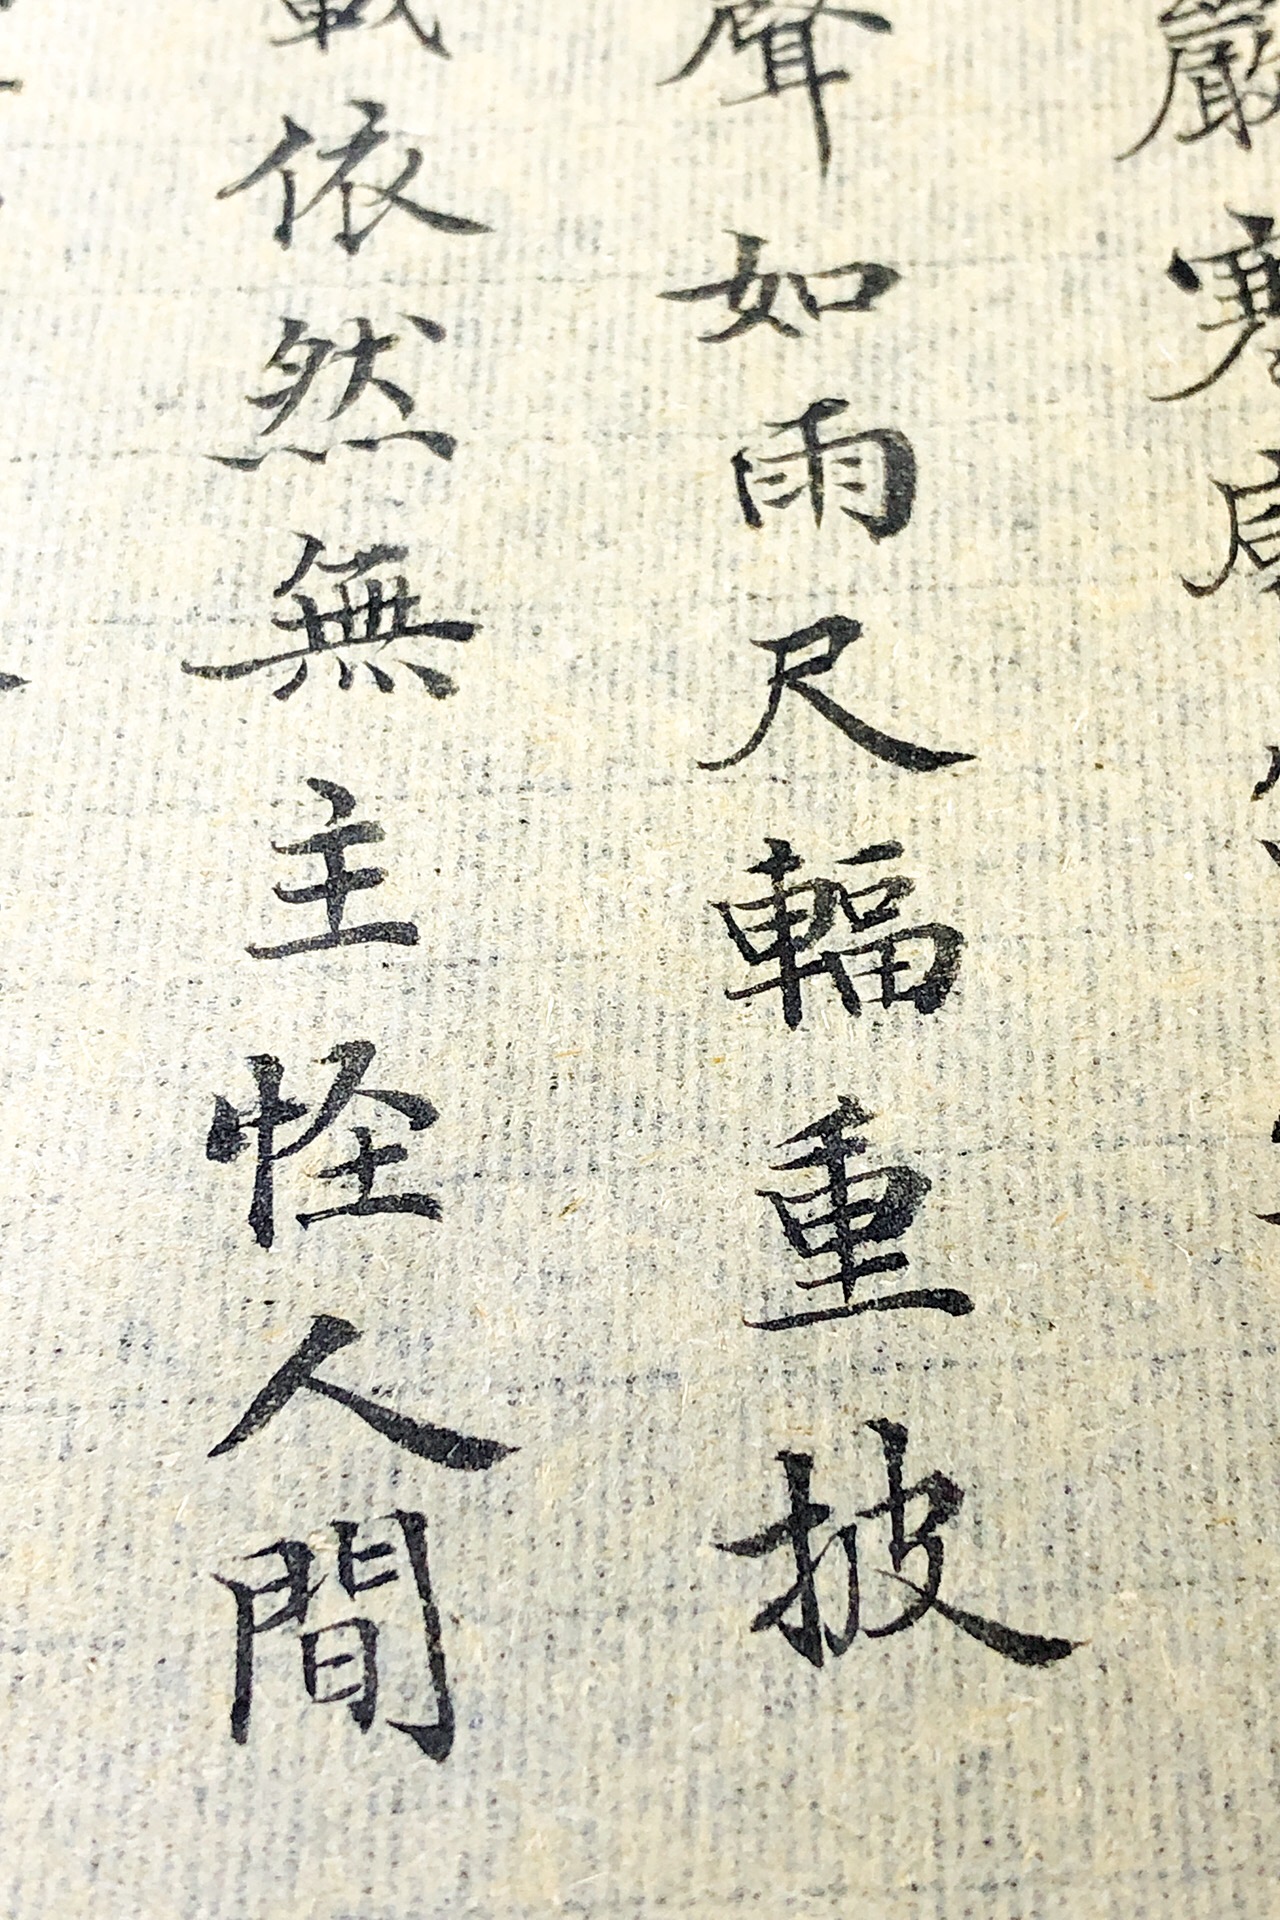 巖寒
聲如雨尺輻重披
載依然無主怪人間